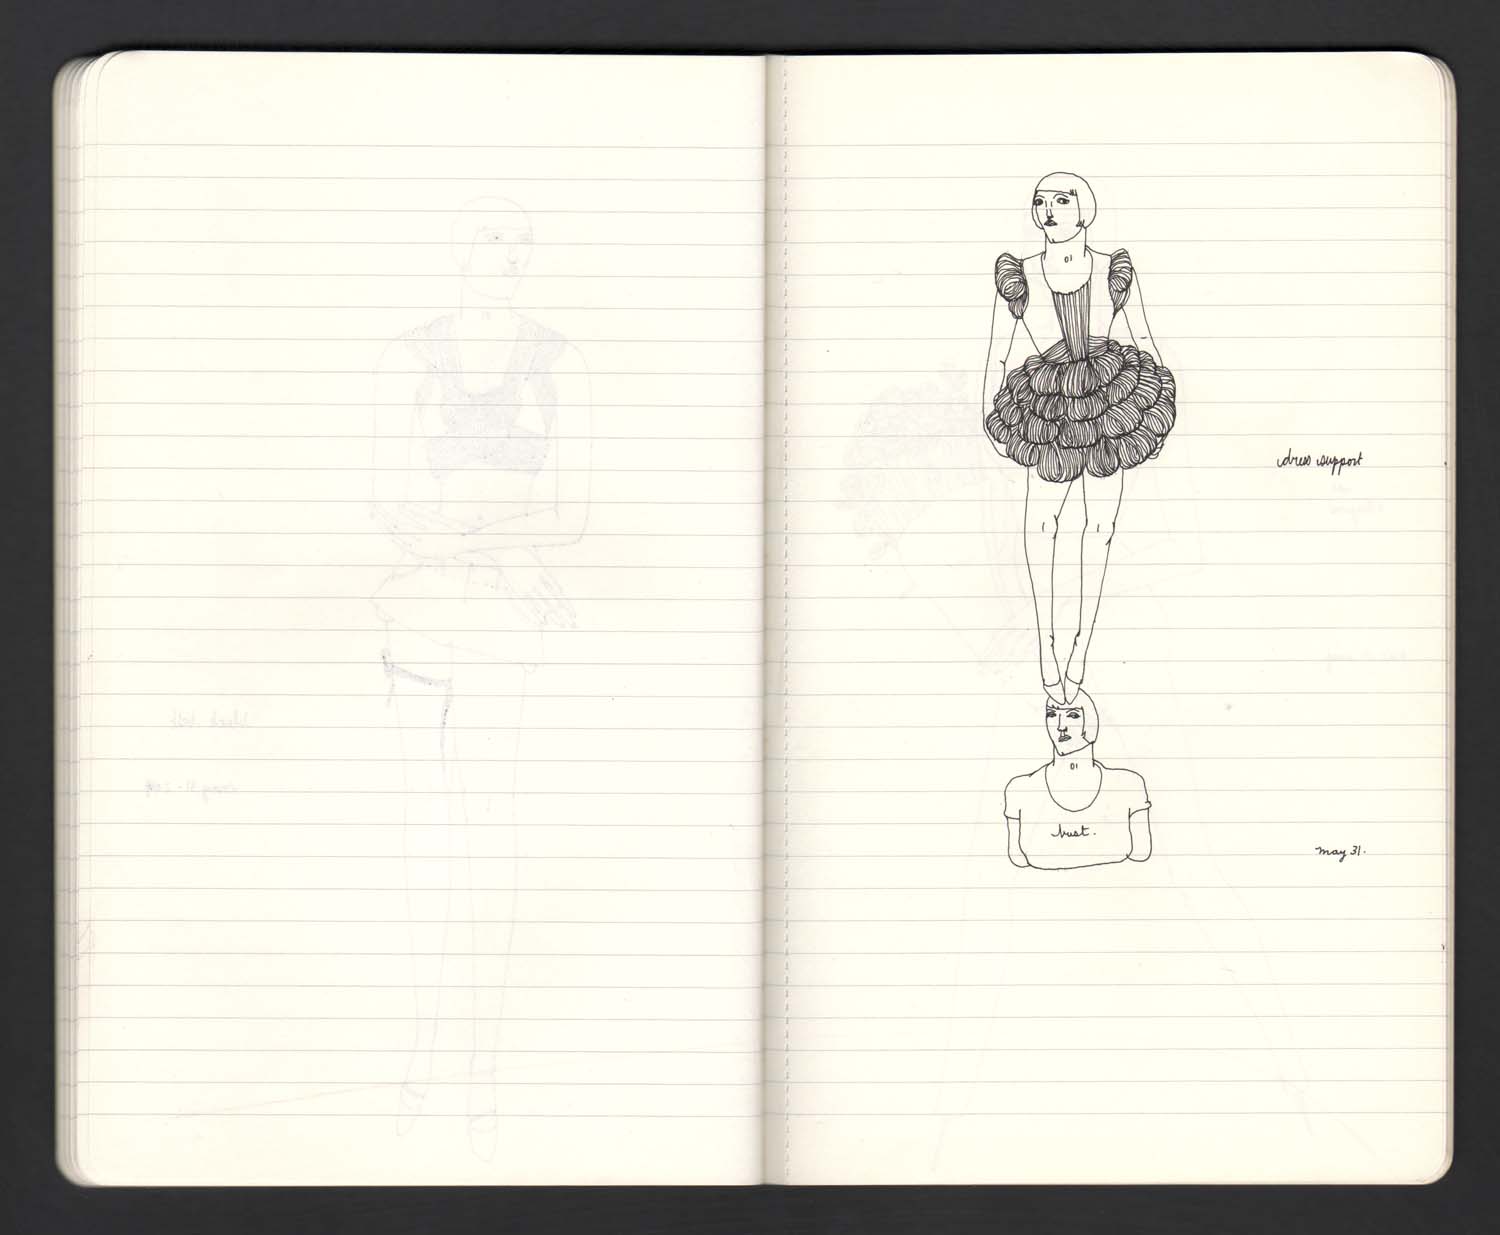 dress support
bust.
may 31.